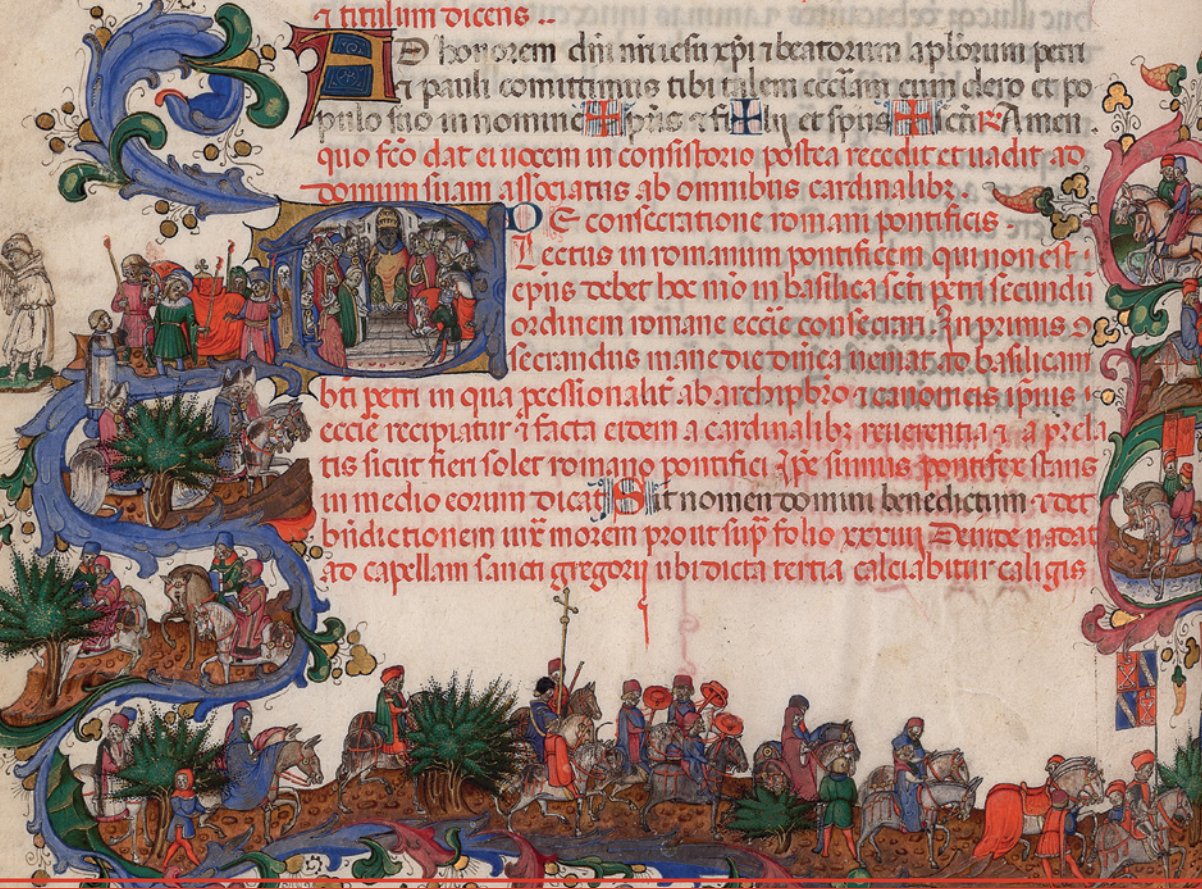 ⁊ titulum dicens ..
AD honorem dni nri iesu xpi ⁊ beatorum aplorum petri
⁊ pauli comittimus tibi talem ecciam cum clero et po
pulo suo in nomine ✠ pris ⁊ fi ✠ lij et spus ✠ scti R Amen .
quo fco dat ei uocem in consistorio postea recedit et uadit ad
domum suam associatus ab omnibus cardinalibz
DE consecratione romani pontificis .
Electus in romanum pontificem qui non est
epus debet hoc mo in basilica scti petri secundu
ordinem romane eccie consecrari. In primis
secrandus mane die dnica ueniat ad basilicam
bti petri in qua pcessionalit ab archipbro ⁊ canonicis ipius
eccie recipiatur ⁊ facta eidem a cardinalibz reuerentia ⁊ a prela
tis sicut fieri solet romano pontifici ipe sumus pontifex stans
in medio eorum dicat Sit nomen domini benedictum ⁊ det
bndictionem iux morem prout sup folio xxxiiij Deinde uadat
ad capellam sancti gregorij ubi dicta tertia calciabitur caligis